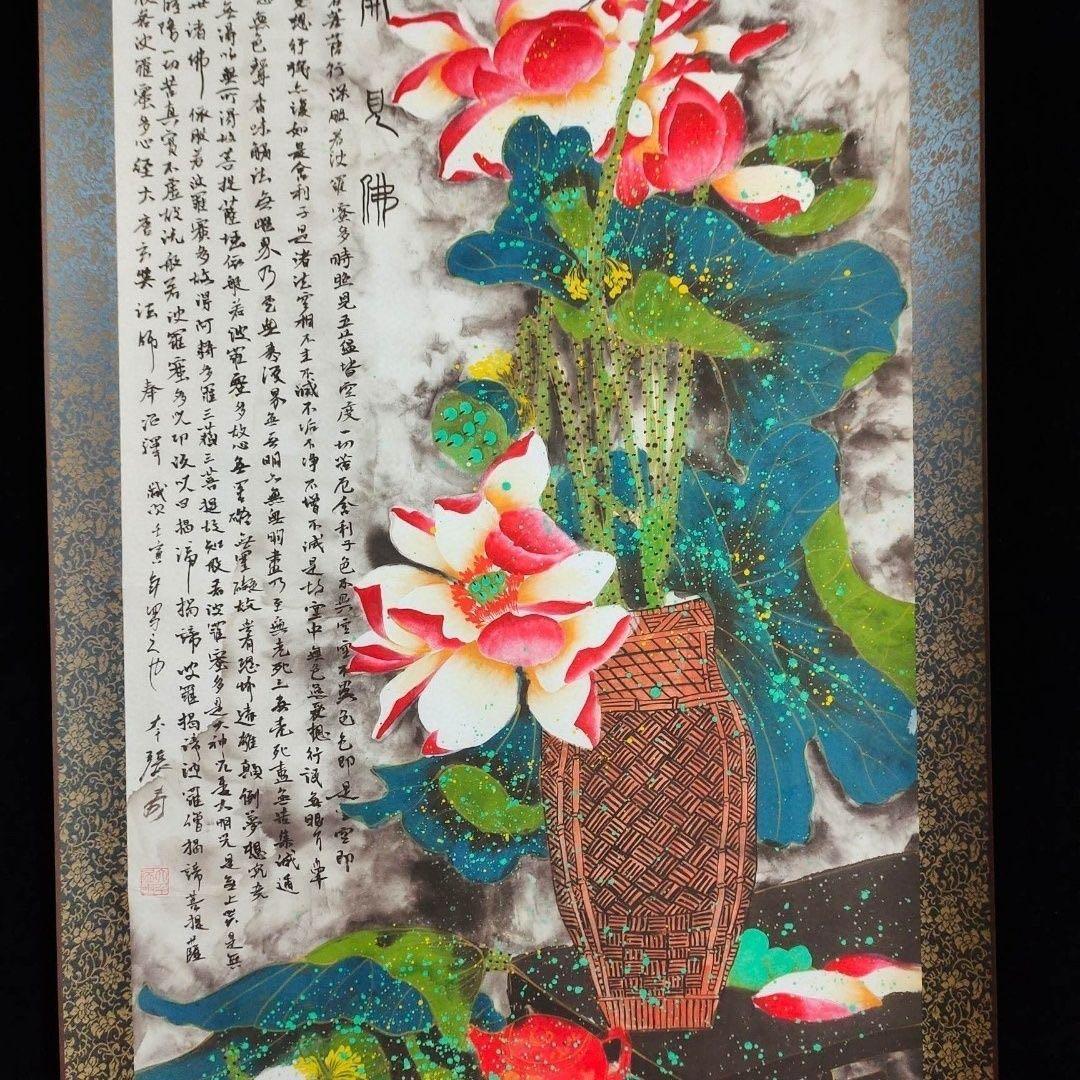 開見佛
菩薩行深般若波羅蜜多時照見五蘊皆空度一切苦厄舍利子色不異空空不異色色即是空空即
受想行識亦復如是舍利子是諸法空相不生不滅不垢不淨不增不減是故空中無色無受想行識無眼耳鼻
意無色聲香味觸法無眼界乃至無意識界無無明亦無無明盡乃至無老死亦無老死盡無苦集滅道
無得以無所得故菩提薩埵依般若波羅蜜多故心無罣礙無罣礙故無有恐怖遠離顛倒夢想究竟
世諸佛依般若波羅蜜多故得阿耨多羅三藐三菩提故知般若波羅蜜多是大神咒是大明咒是無上咒是無
能除一切苦真實不虛故說般若波羅蜜多咒即說咒曰揭諦揭諦波羅揭諦波羅僧揭諦菩提薩
般若波羅蜜多心經大唐玄奘法師奉詔譯歲次壬寅年